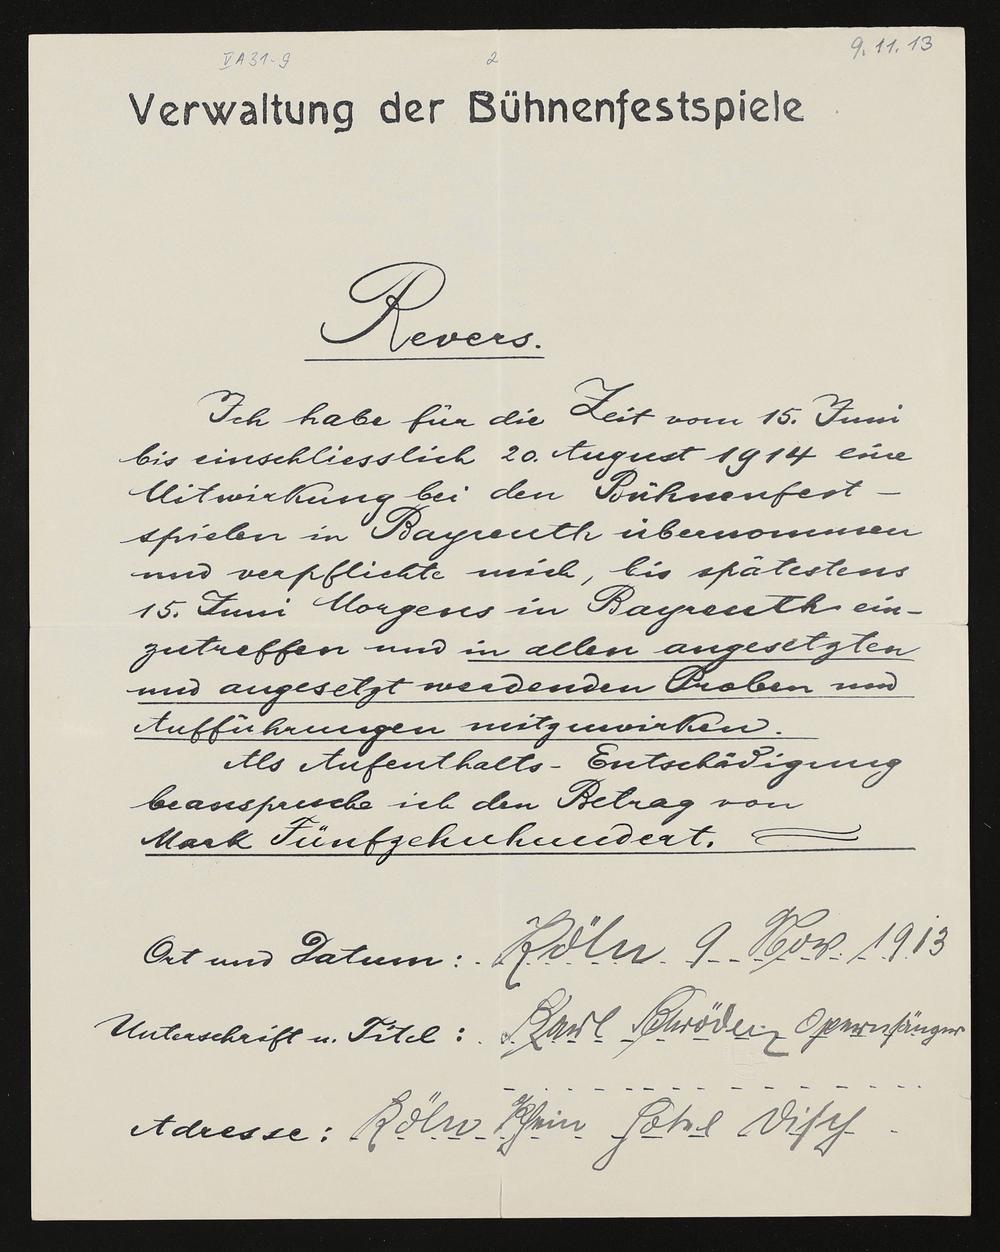 VA31-9 2 9.11.13
Verwaltung der Bühnenfestspiele
Revers.
Ich habe für die Zeit vom 15. Juni
bis einschliesslich 20. August 1914 eine
Mitwirkung bei den Bühnenfest-
spielen in Bayreuth übernommen
und verpflichte mich, bis spätestens
15. Juni Morgens in Bayreuth ein-
zutreffen und in allen angesetzten
und angesetzt werdenden Proben und
Aufführungen mitzuwirken.
Als Aufenthalts-Entschädigung
beanspruche ich den Betrag von
Mark Fünfzehnhundert.
Ort und Datum: Köln 9 Nov. 1913
Unterschrift u. Titel: Karl Schröder Opernsänger
Adresse: Köln Rhein Hotel Disch